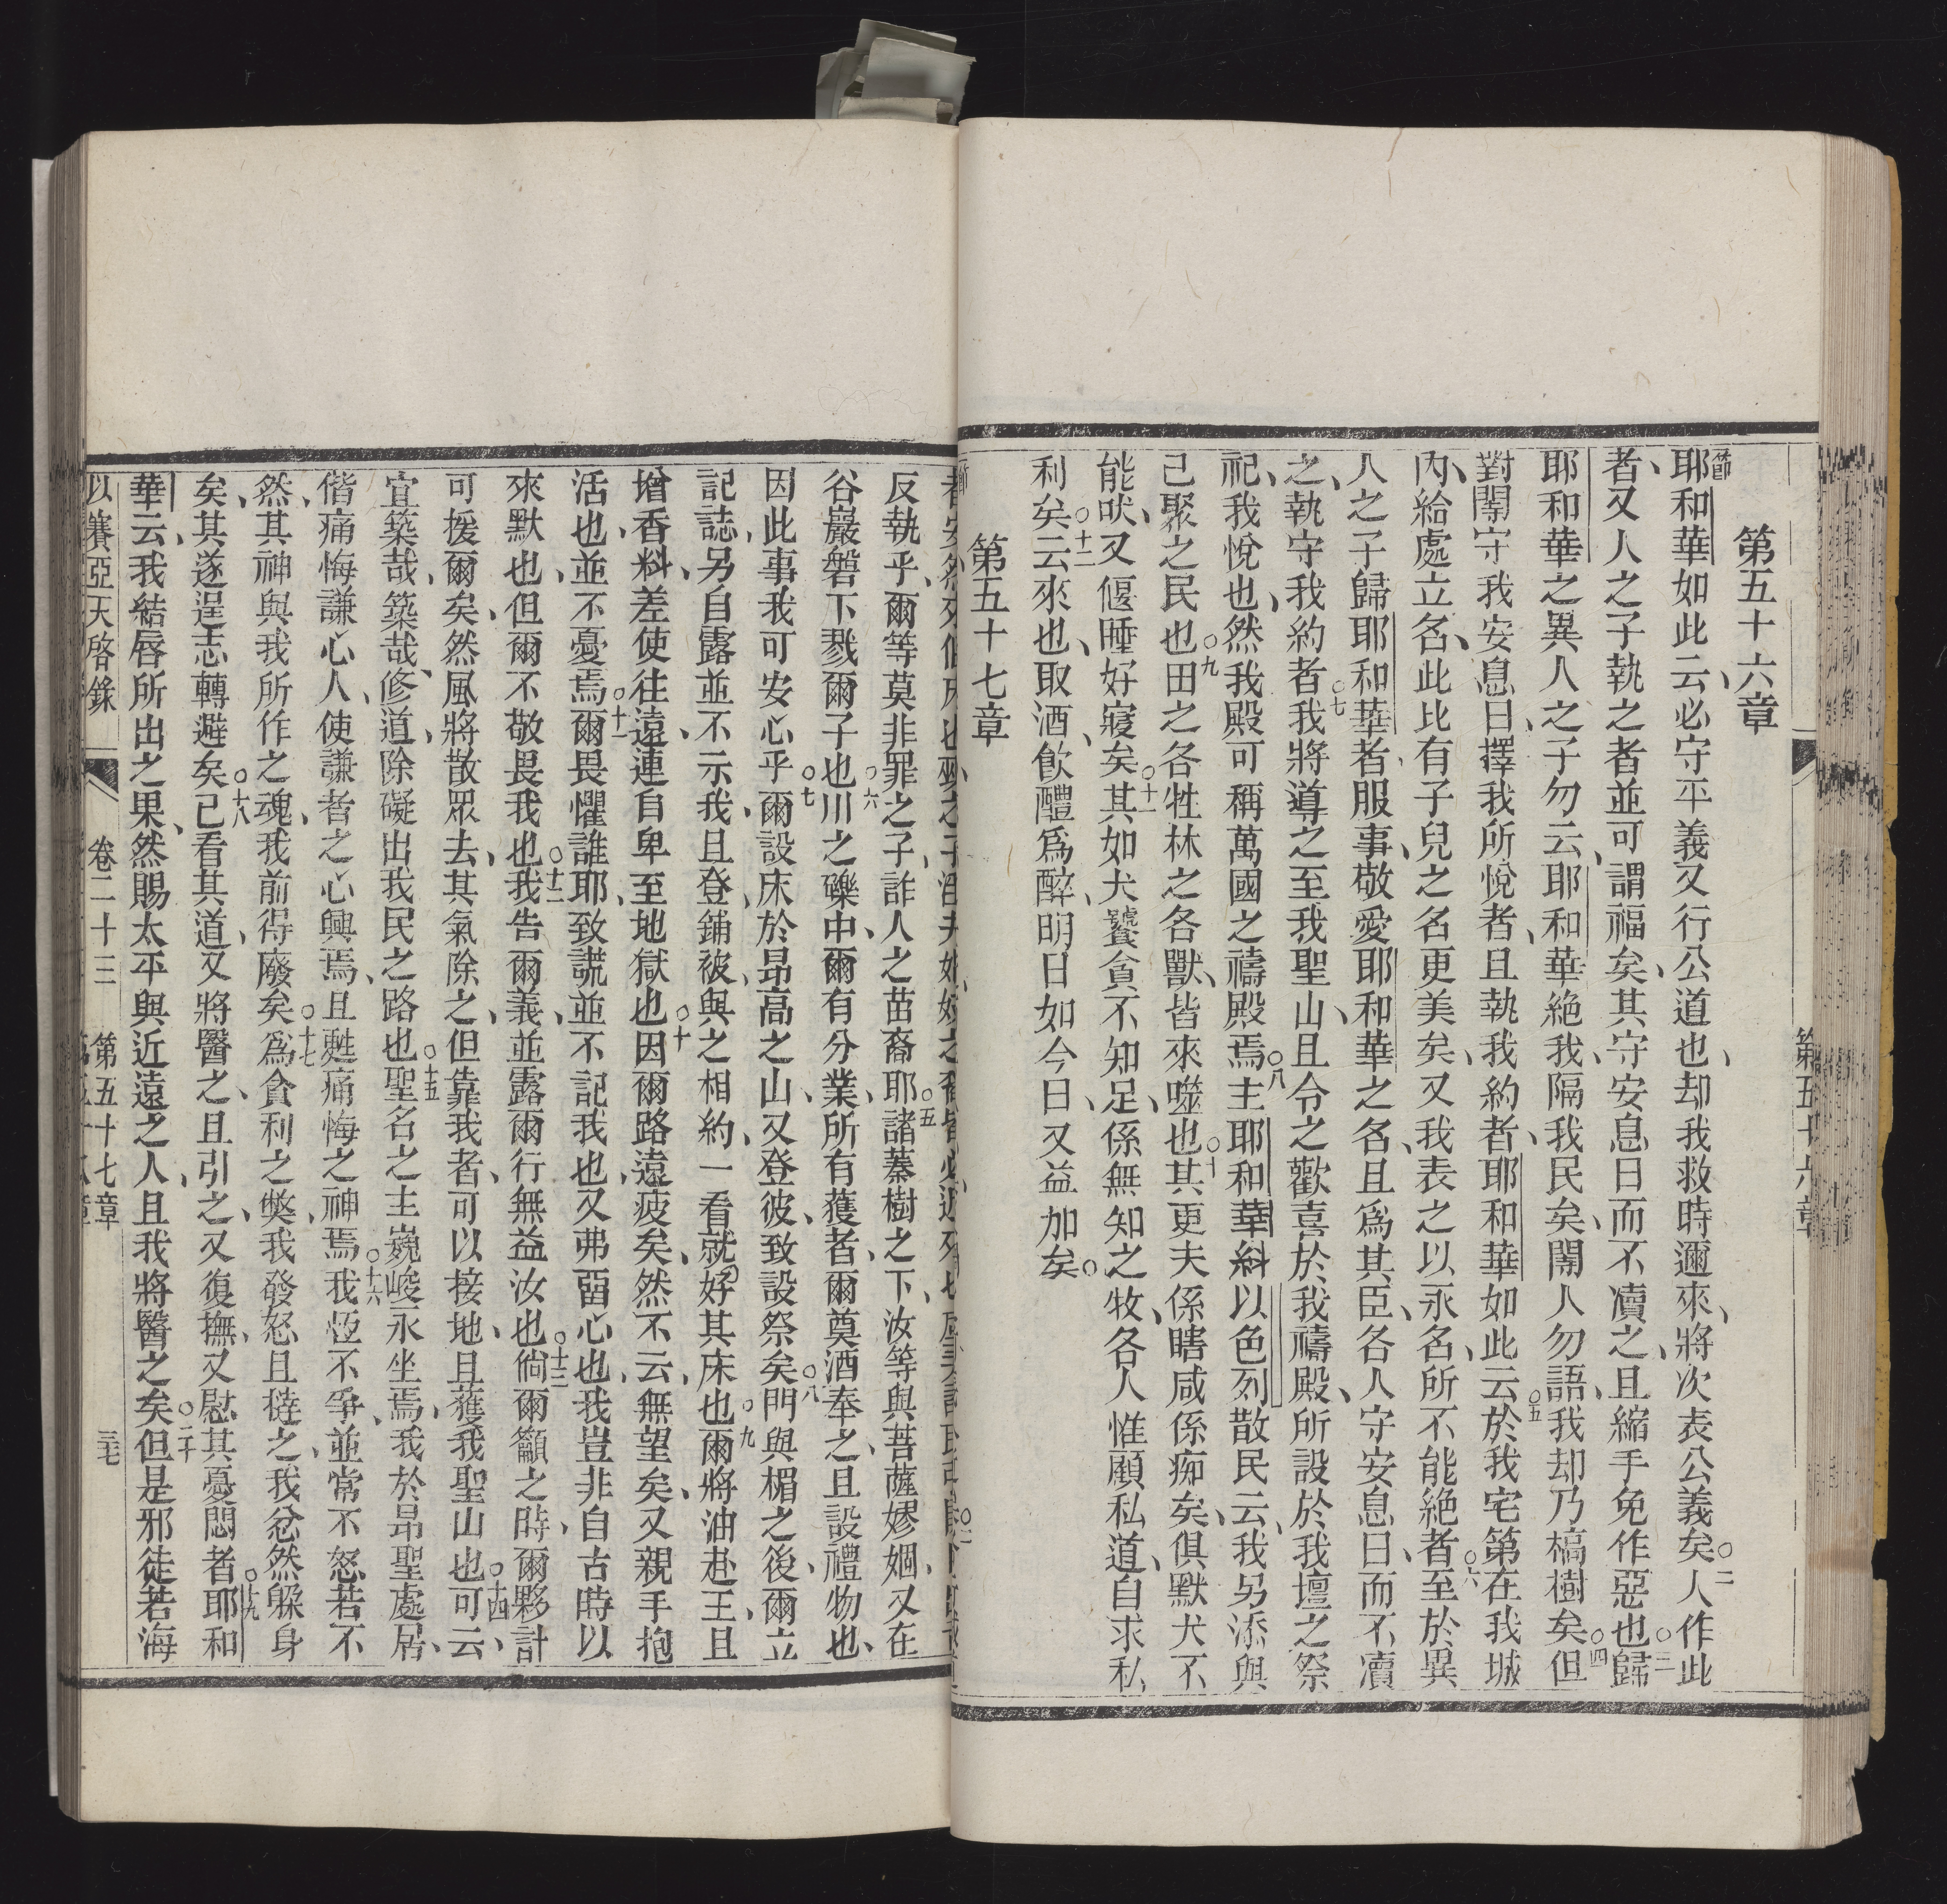 第五十六章
節耶和華如此云、必守平義又行公道也、却我救時邇來、將次表公義矣○二人作此
者、又人之子執之者並可謂福矣、其守安息日而不凟之、且縮手免作惡也○三歸
耶和華之異人之子勿云、耶和華絶我、隔我民矣、閹人勿語、我却乃槁樹矣○四但
對閹守我安息日、擇我所悅者、且執我約者、耶和華如此云○五於我宅第在我城
內、給處立名、此比有子兒之名更美矣、又我表之以永名、所不能絶者○六至於異
人之子歸耶和華者、服事、敬愛耶和華之名、且爲其臣、各人守安息日、而不凟
之、執守我約者○七我將導之至我聖山、且令之歡喜於我禱殿、所設於我壇之祭
祀、我悅也、然我殿可稱萬國之禱殿焉○八主耶和華糾以色列散民云、我另添與
己聚之民也○九田之各牲林之各獸、皆來噬也○十其更夫係瞎咸係痴矣、俱默犬不
能吠、又偃睡好寢矣○十一其如犬饕貪不知足、係無知之牧、各人惟顧私道、自求私
利矣○十二云來也、取酒、飲醴爲醉、明日如今日、又益加矣○
第五十七章
第五十六章
反執乎、爾等莫非罪之子、詐人之苗裔耶○五諸蓁樹之下、汝等與菩薩嫪婟、又在
谷巖磐下戮爾子也○六川之礫中、爾有分業、所有蒦者、爾奠酒奉之、且設禮物也、
因此事我可安心乎○七爾設床於昻高之山、又登彼、致設祭矣○八門與楣之後、爾立
記誌、另自露並不示我、且登、鋪被、與之相約、一看就好其床也○九爾將油赴王、且
增香料、差使往遠、連自卑至地獄也○十因爾路遠疲矣、然不云、無望矣、又親手抱
活也、並不憂焉○十一爾畏懼誰耶、致謊並不記我也、又弗畱心也、我豈非自古時以
來默也、但爾不敬畏我也○十二我告爾義、並露爾行無益汝也○十三倘爾籲之時、爾夥計
可援爾矣、然風將散眾去、其氣除之、但靠我者、可以接地、且蒦我聖山也○十四可云、
宜築哉、築哉、修道、除礙出我民之路也○十五聖名之主巍峻永坐焉、我於昻聖處居、
偕痛悔謙心人、使謙者之心興焉、且甦痛悔之神焉○十六我恆不爭、並常不怒、若不
然、其神與我所作之魂、我前得廢矣○十七爲貪利之獘、我發怒且撻之、我忿然躲身
矣、其遂逞志轉避矣○十八已看其道、又將醫之、且引之、又復撫、又慰其憂悶者○十九耶和
華云、我結唇所出之果、然賜太平與近遠之人、且我將醫之矣○二十但是邪徒若海
以賽亞天啓錄 卷二十三 第五十七章 三七